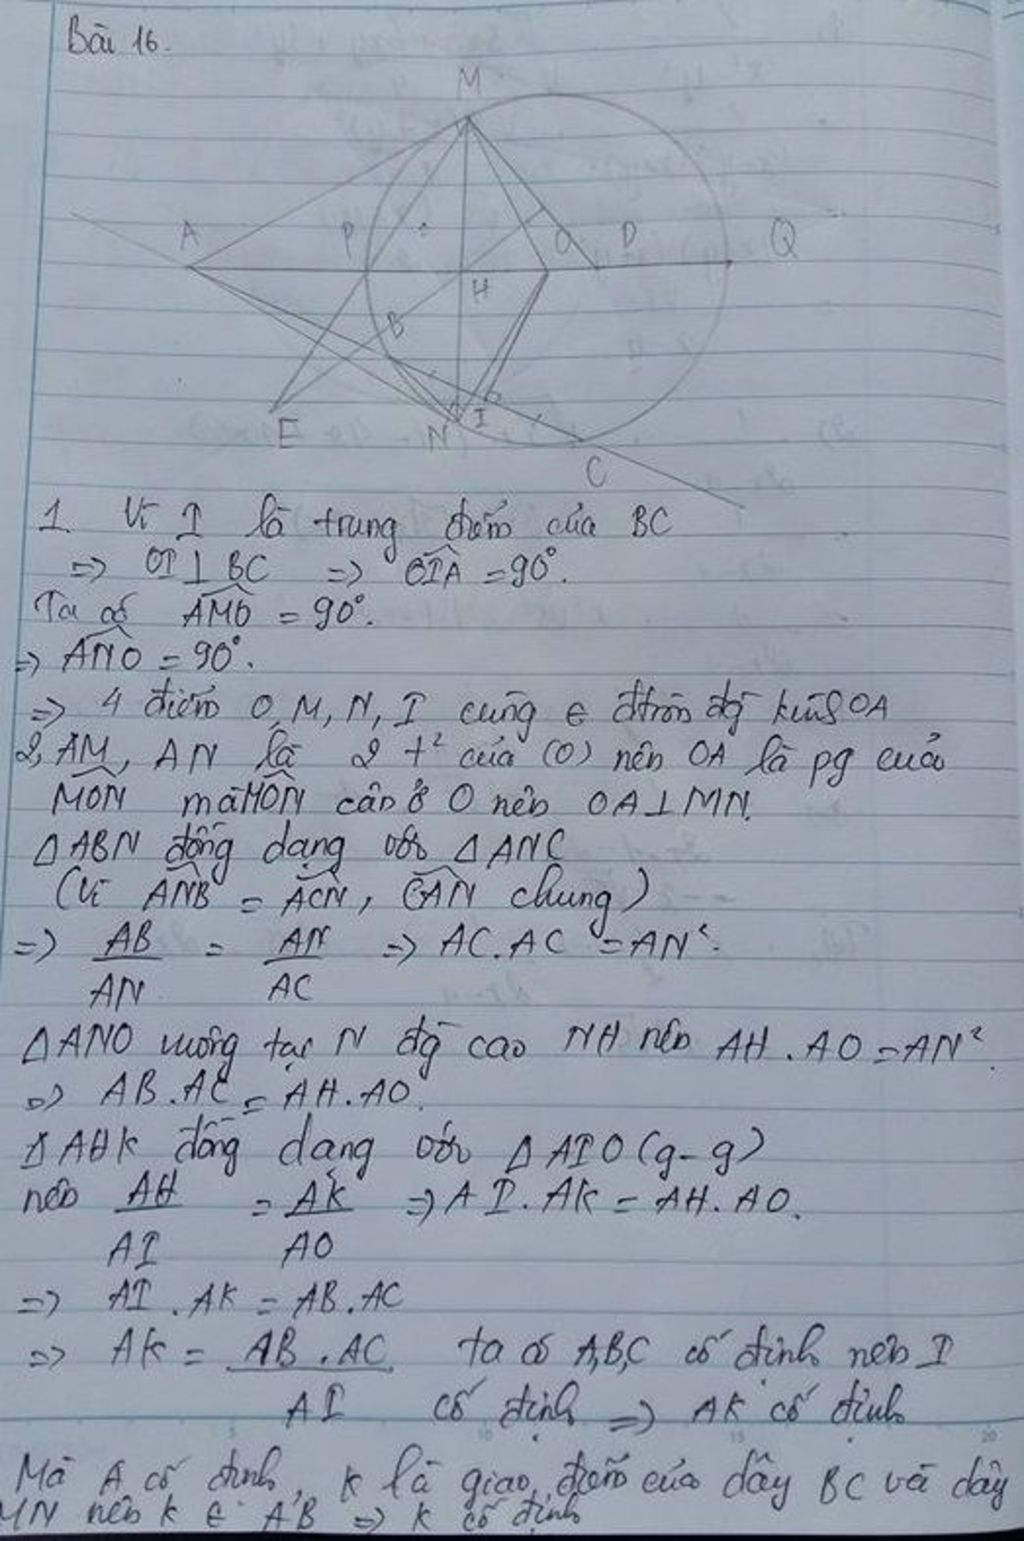 Bài 16.
M
A P O D Q
H
B
E N I
C
1. Vì I là trung điểm của BC
=> OI ⊥ BC => OIA = 90°.
Ta có AMO = 90°.
=> ANO = 90°.
=> 4 điểm O, M, N, I cùng ∈ đtròn đg kính OA
2, AM, AN là 2 t² của (O) nên OA là pg của
MON mà MON cân ở O nên OA ⊥ MN.
Δ ABN đồng dạng với Δ ANC
(Vì ANB = ACN, CAN chung)
=> AB/AN = AN/AC => AC.AC = AN².
Δ ANO vuông tại N đg cao NH nên AH.AO = AN².
=> AB.AC = AH.AO.
Δ AHK đồng dạng với Δ AIO (g-g)
nên AH/AI = AK/AO => AI.AK = AH.AO.
=> AI.AK = AB.AC
=> AK = AB.AC/AI ta có A,B,C cố định nên I
cố định => AK cố định
Mà A cố định, K là giao điểm của dây BC và dây
MN nên K ∈ AB => K cố định